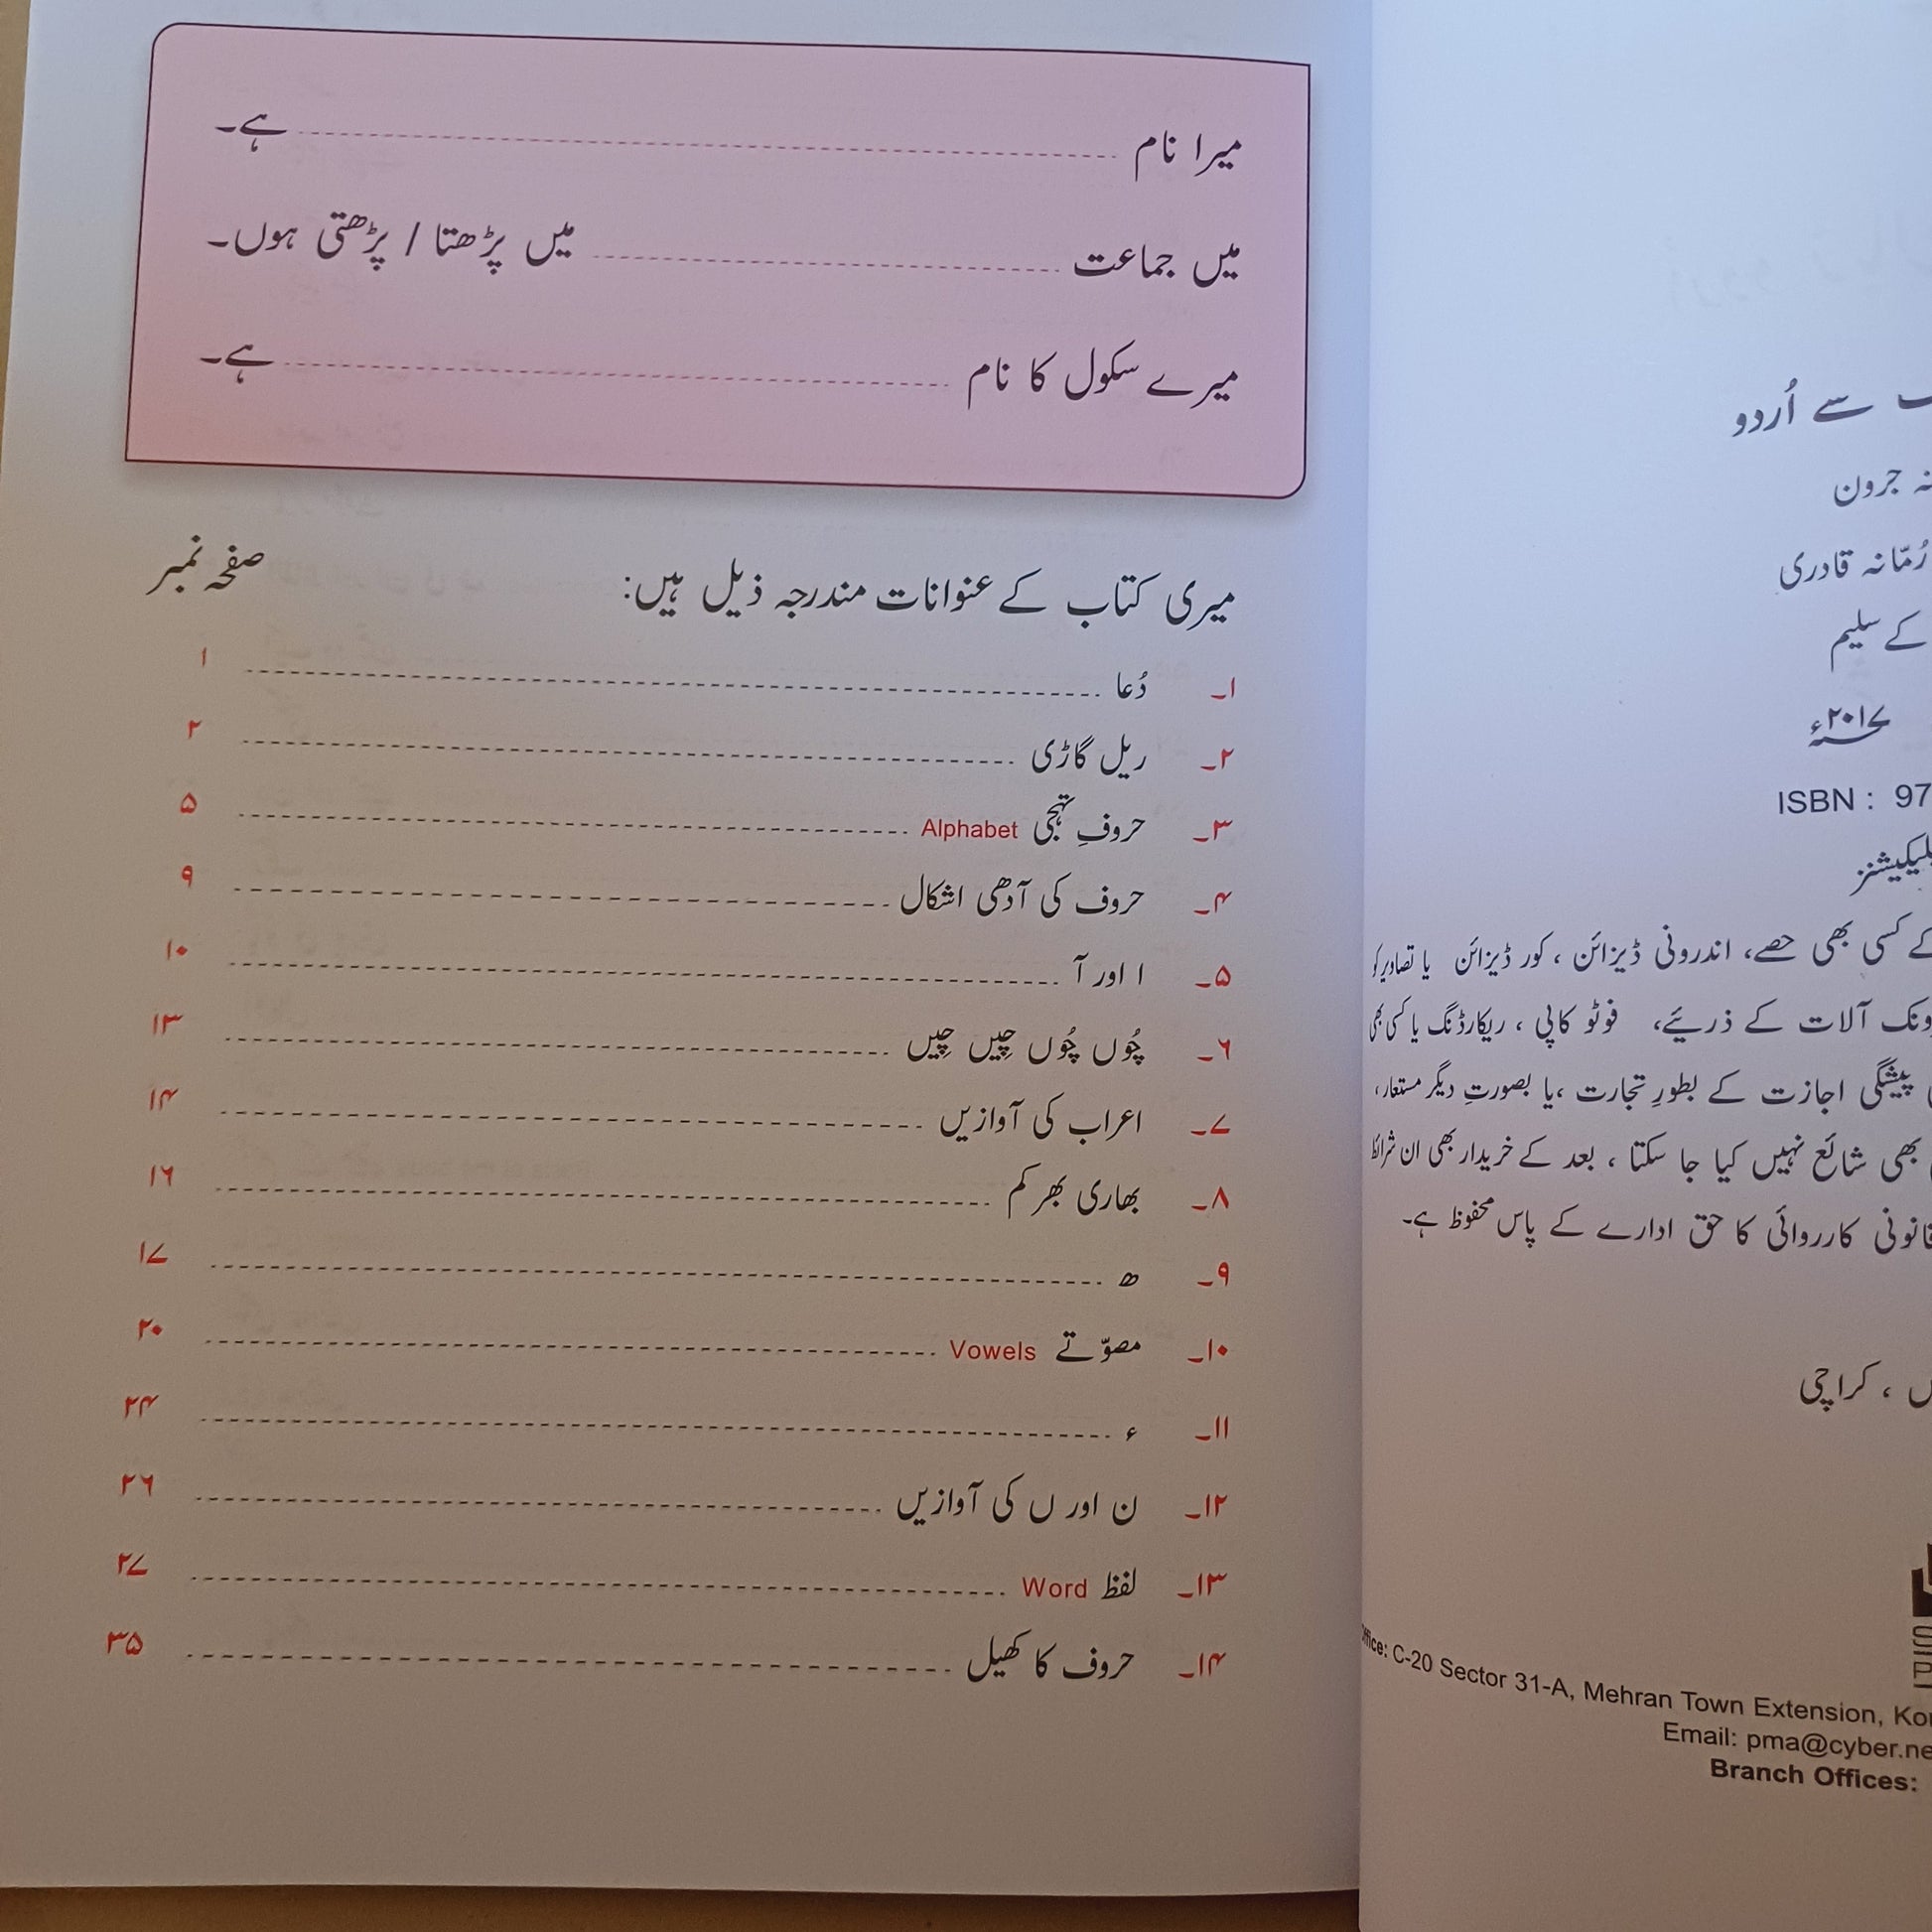 میرا نام ---------- ہے۔
میں جماعت ---------- میں پڑھتا / پڑھتی ہوں۔
میرے سکول کا نام ---------- ہے۔
میری کتاب کے عنوانات مندرجہ ذیل ہیں: صفحہ نمبر
۱۔ دُعا ---------- ۱
۲۔ ریل گاڑی ---------- ۲
۳۔ حروفِ تہجّی Alphabet ---------- ۵
۴۔ حروف کی آدھی اشکال ---------- ۹
۵۔ ا اور آ ---------- ۱۰
۶۔ چُوں چُوں چِیں چِیں ---------- ۱۳
۷۔ اعراب کی آوازیں ---------- ۱۴
۸۔ بھاری بھرکم ---------- ۱۶
۹۔ ھ ---------- ۱۷
۱۰۔ مصوّتے Vowels ---------- ۲۰
۱۱۔ ء ---------- ۲۴
۱۲۔ ن اور ں کی آوازیں ---------- ۲۶
۱۳۔ لفظ Word ---------- ۲۷
۱۴۔ حروف کا کھیل ---------- ۳۵
سے اُردو
جرون
رُمّانہ قادری
کے سلیم
۲۰۱۷ء
ISBN : 97
کسی بھی حصے، اندرونی ڈیزائن ، کور ڈیزائن یا تصاویر کو
آلات کے ذریئے، فوٹو کاپی ، ریکارڈنگ یا کسی بھی
پیشگی اجازت کے بطورِ تجارت ،یا بصورتِ دیگر مستعار،
بھی شائع نہیں کیا جا سکتا ، بعد کے خریدار بھی ان شرائط
کارروائی کا حق ادارے کے پاس محفوظ ہے۔
، کراچی
C-20 Sector 31-A, Mehran Town Extension,
Email: pma@cyber.ne
Branch Offices: